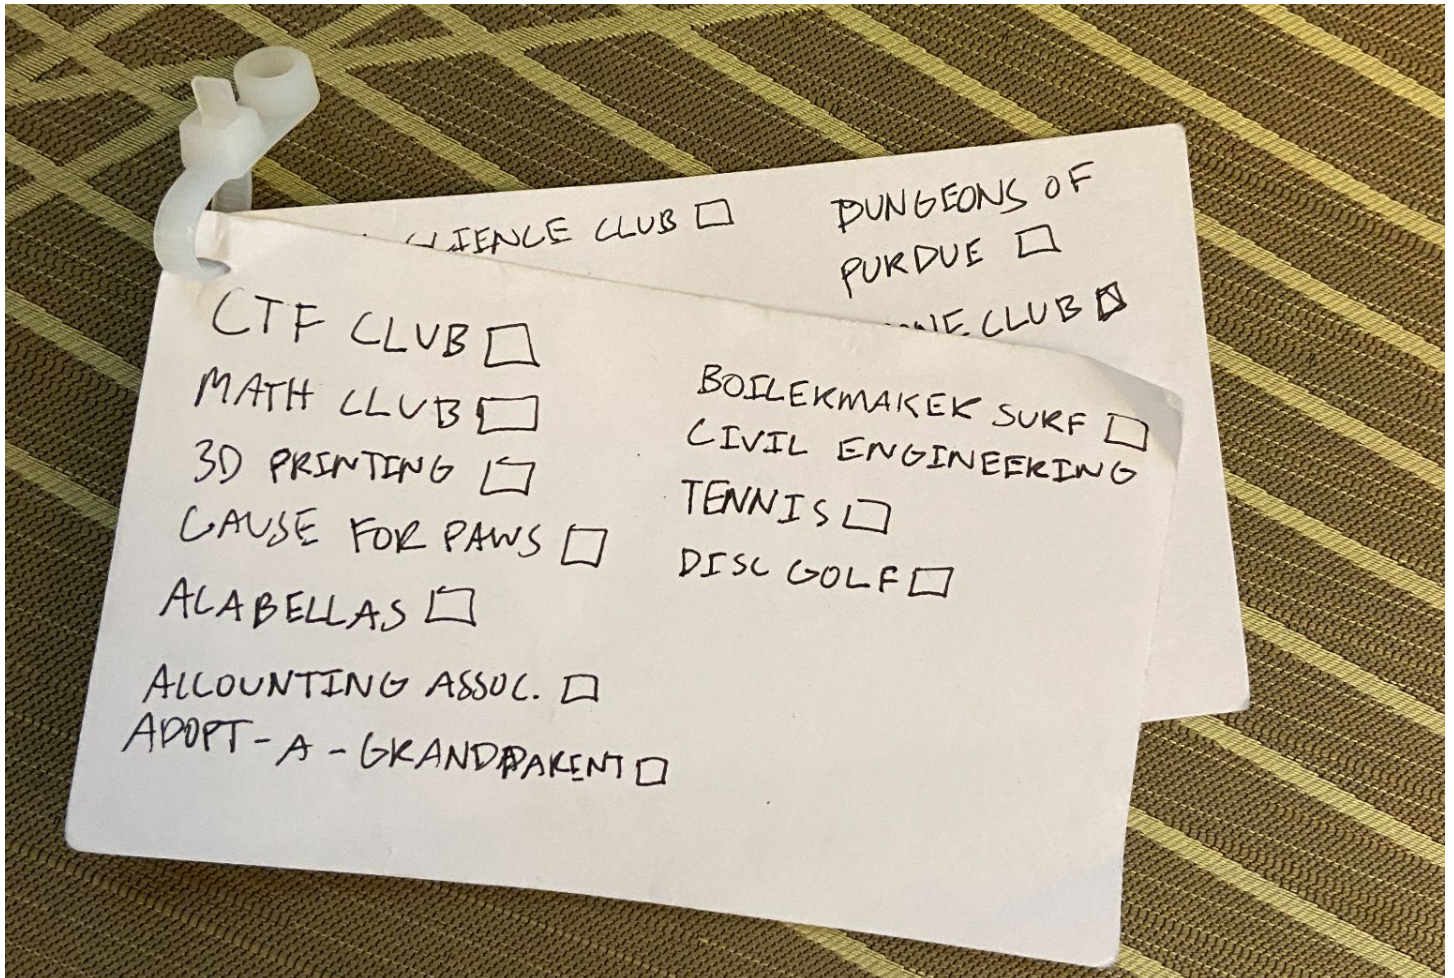 SCIENCE CLUB
DUNGEONS OF
PURDUE
CLUB
CTF CLUB
MATH CLUB
3D PRINTING
CAUSE FOR PAWS
ACABELLAS
ACCOUNTING ASSOC.
ADOPT-A-GRANDPARENT
BOILERMAKER SURF
CIVIL ENGINEERING
TENNIS
DISC GOLF